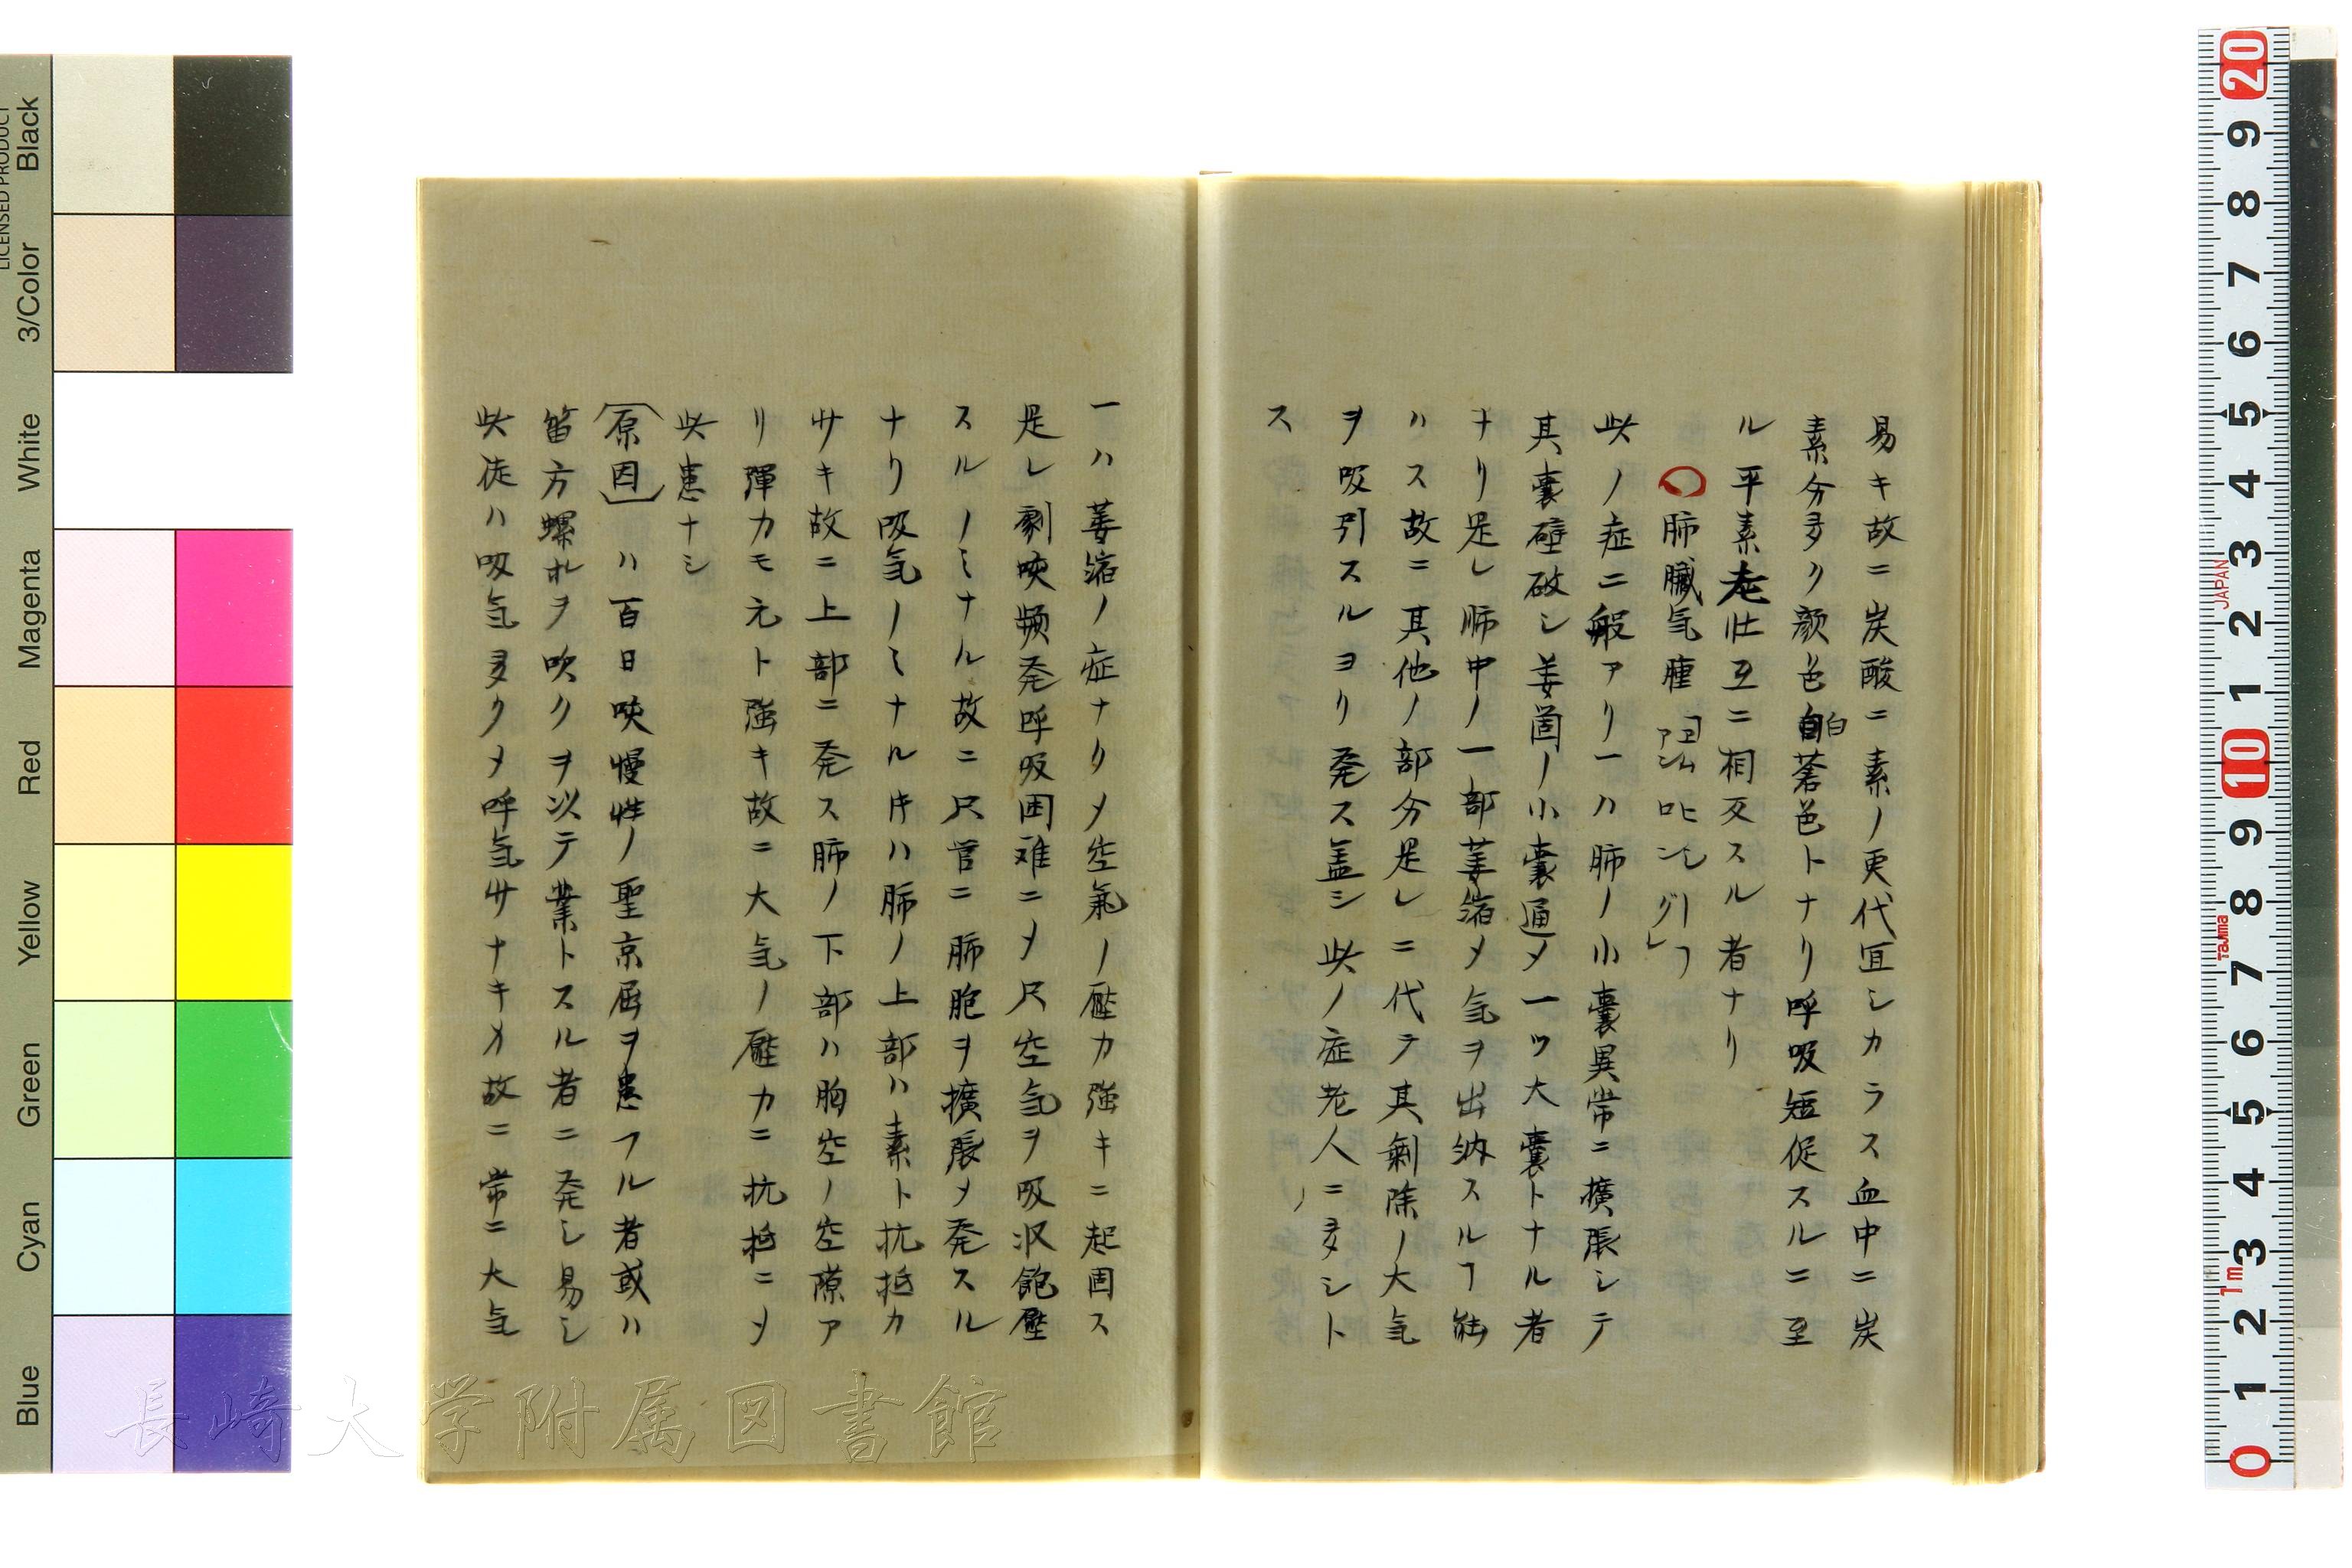 易キ故ニ炭酸ニ素ノ更代宜シカラス血中ニ炭
素分多ク顔色白蒼色トナリ呼吸短促スルニ至
ル平素老壮互ニ相交スル者ナリ
〇肺臓気腫
此ノ症ニ般アリ一ハ肺ノ小嚢異常ニ擴張シテ
其嚢壁破シ姜箇ノ小嚢通メ一ツ大嚢トナル者
ナリ是レ肺中ノ一部萎縮メ気ヲ出納スルヿ能
ハス故ニ其他ノ部分是レニ代テ其剰除ノ大気
ヲ吸引スルヨリ発ス盖シ此ノ症老人ニ多シト
ス
一ハ萎縮ノ症ナクメ空氣ノ壓力強キニ起因ス
是レ劇咳頻発呼吸困难ニメ尺空気ヲ吸収飽壓
スルノミナル故ニ尺管ニ肺胞ヲ擴張メ発スル
ナリ吸気ノミナル㐧ハ肺ノ上部ハ素ト抗抵力
サキ故ニ上部ニ発ス肺ノ下部ハ胸空ノ空隙ア
リ弾力モ元ト強キ故ニ大気ノ壓力ニ抗抵ニメ
此患ナシ
(原因)ハ百日咳慢性ノ聖京屈ヲ患フル者或ハ
笛方螺ホレヲ吹クヲ以テ業トスル者ニ発シ易シ
此徒ハ吸気多クメ呼気サナキメ故ニ常ニ大気
Black
3/Color
White
Magenta
Red
Yellow
Green
Cyan
Blue
LICENSED PRODUCT
JAPAN
Tajima
1m
20
9
8
7
6
5
4
3
2
1
10
9
8
7
6
5
4
3
2
1
0
長崎大学附属図書館